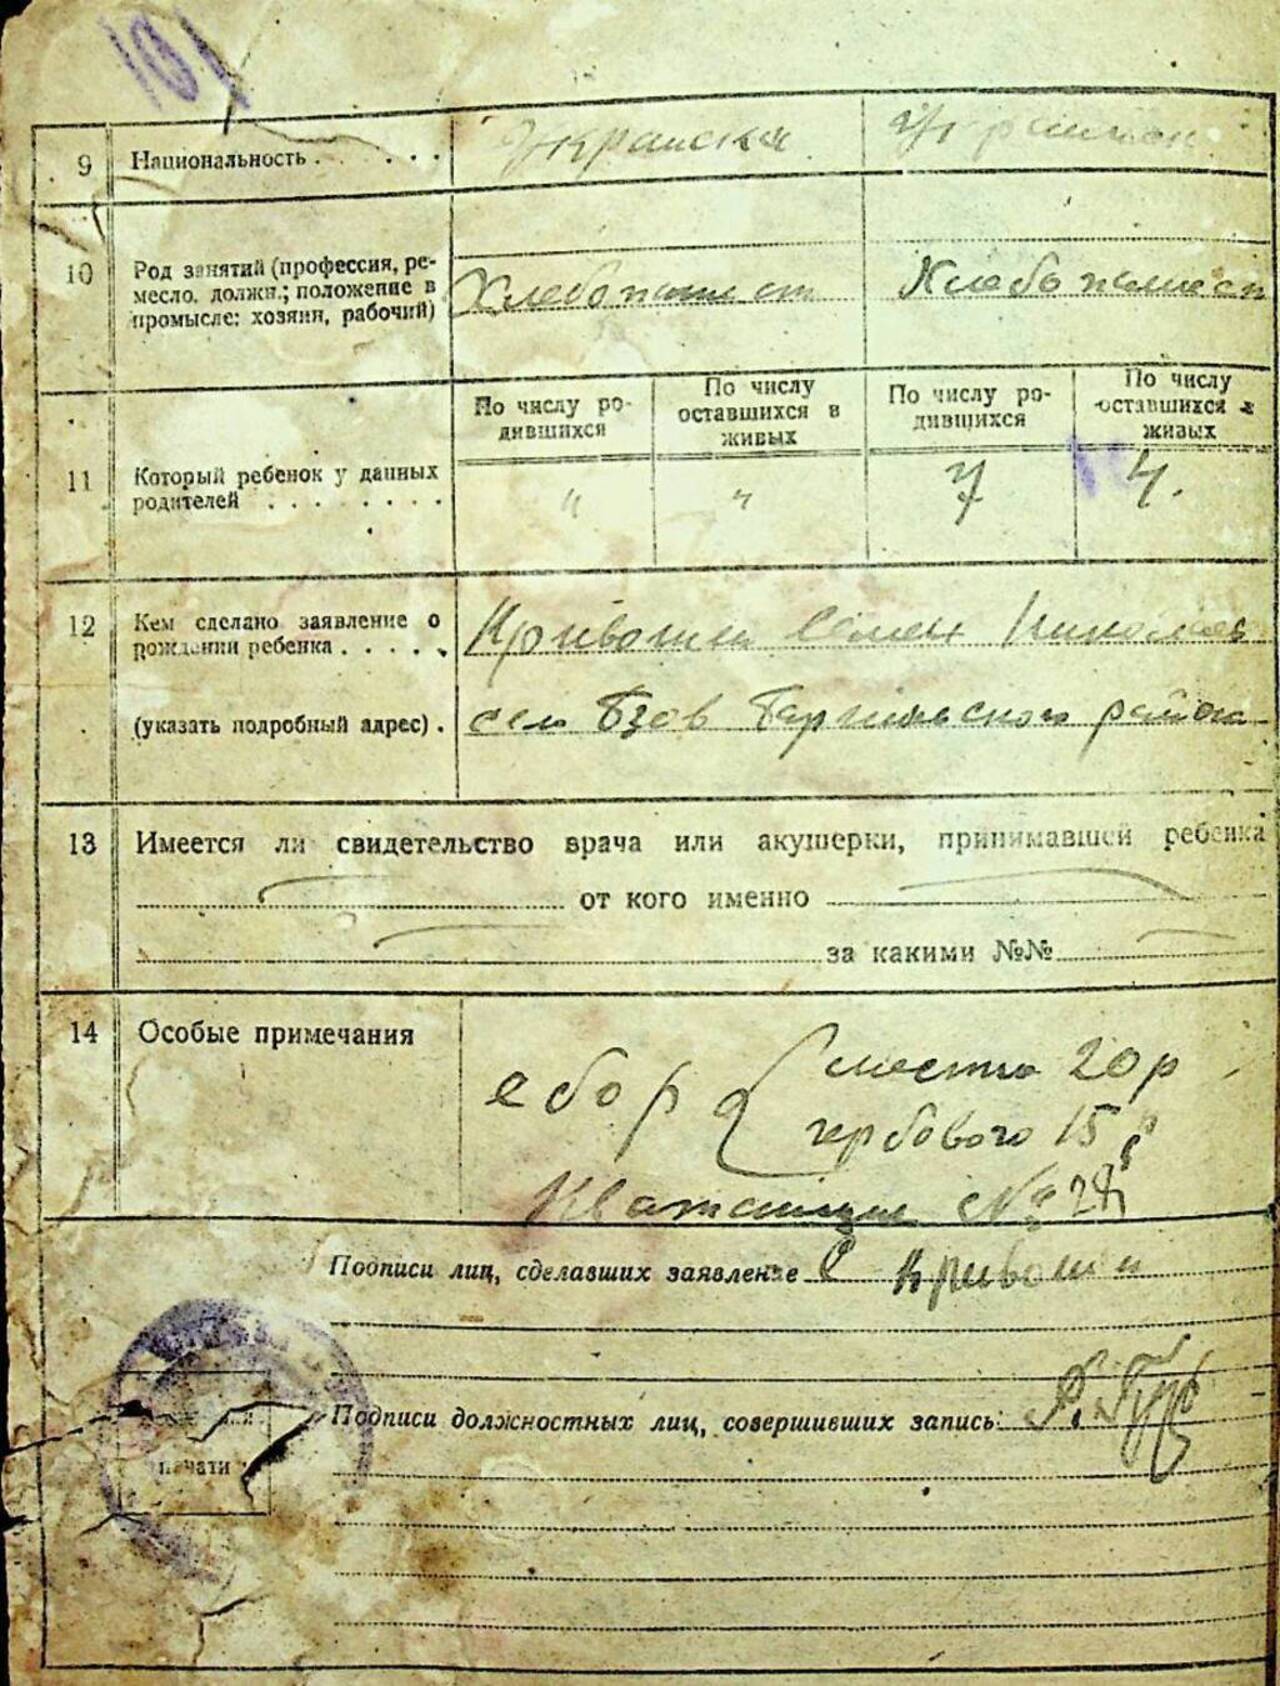 101
9 Национальность . . . . .
Украинка Украинец
10 Род занятий (профессия, ре-
месло, должн.; положение в
промысле: хозяин, рабочий)
Хлебопашест Хлебопашест
По числу ро-
дившихся
По числу
оставшихся в
живых
По числу ро-
дившихся
По числу
оставшихся в
живых
11 Который ребенок у данных
родителей . . . . . . . .
" " 7 4.
12 Кем сделано заявление о
рождении ребенка . . . . .
Кривошии Семен
(указать подробный адрес) .
село Бзов района
13 Имеется ли свидетельство врача или акушерки, принимавшей ребенка
от кого именно
за какими №№
14 Особые примечания
сбор местно 20 р
гербового 15 р
Квитанция № 28
Подписи лиц, сделавших заявление С Кривошии
Подписи должностных лиц, совершивших запись:
печати